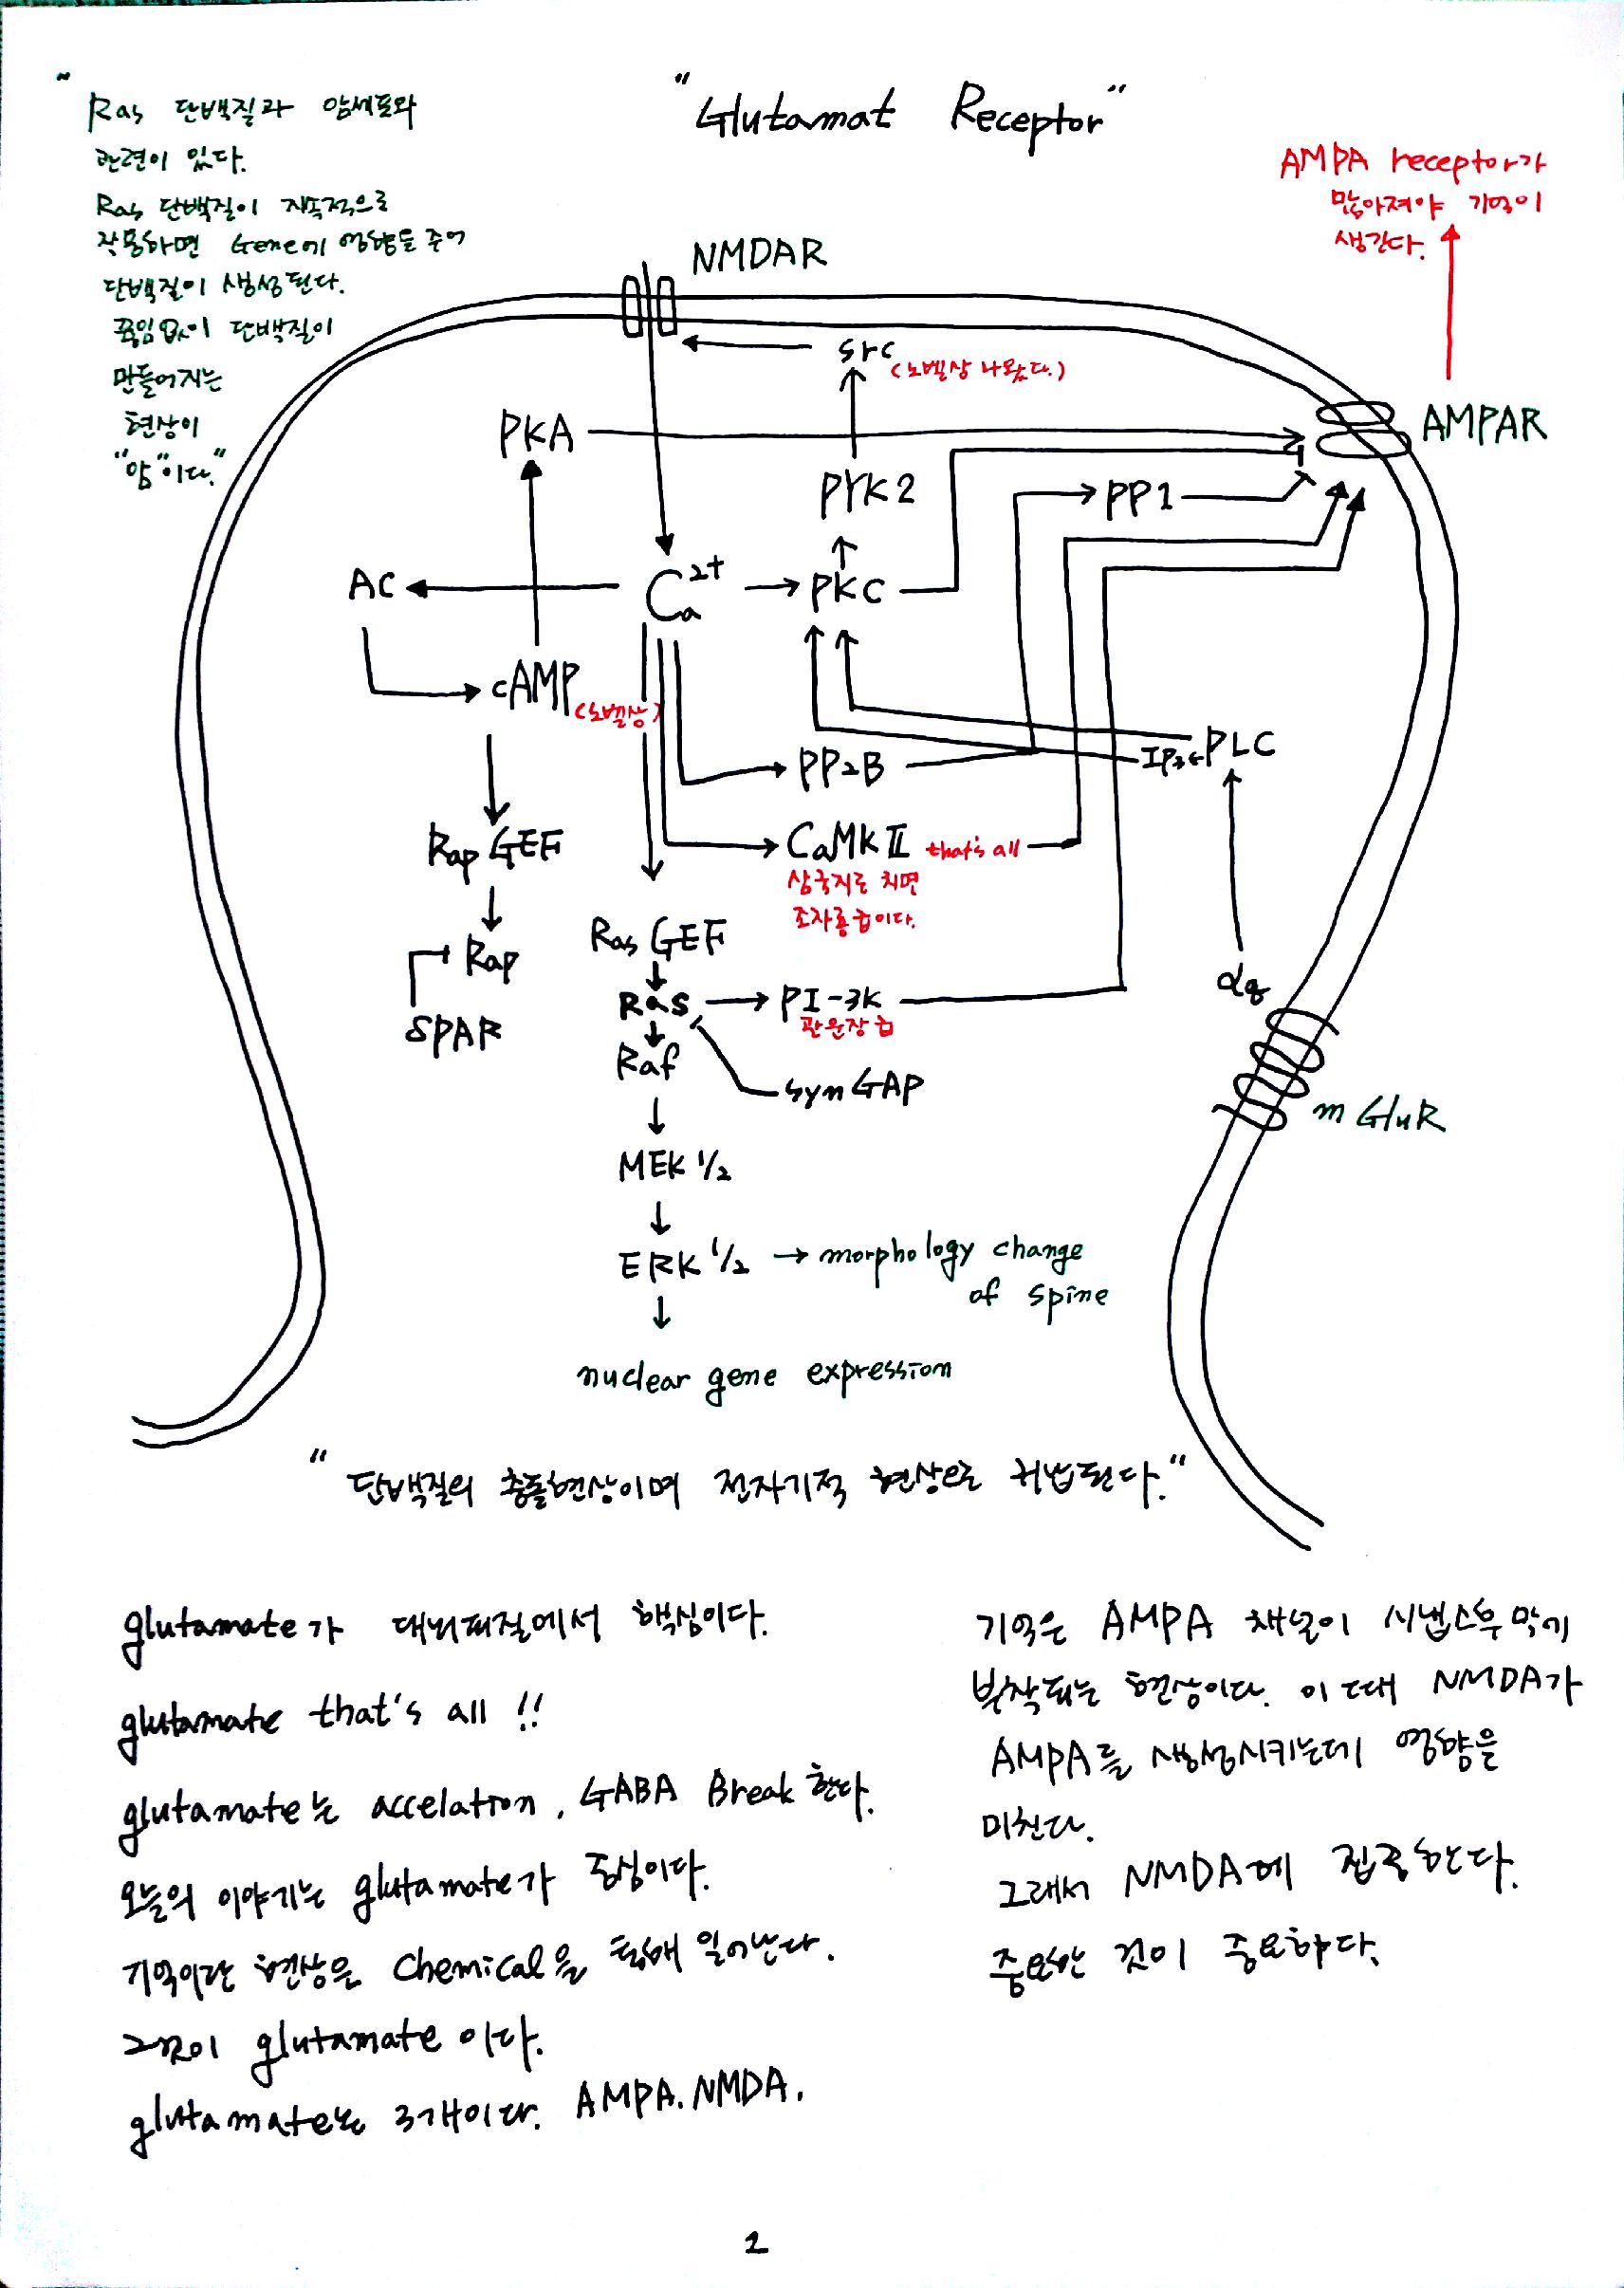 "Glutamat Receptor"
"
Ras 단백질과 암세포와
관련이 있다.
Ras 단백질이 지속적으로
작용하면 Gene에 영향을 주어
단백질이 생성된다.
끊임없이 단백질이
만들어지는
현상이
"암"이다."
AMPA receptor가
많아져야 기억이
생긴다.
NMDAR
src
(노벨상 나왔다.)
AMPAR
PKA
PYK2
PP1
AC
Ca2+
PKC
cAMP
(노벨상)
PP2B
IP3
PLC
Rap GEF
CaMK II that's all
삼국지로 치면
조자룡급이다.
Ras GEF
Rap
αq
Ras
PI-3K
관운장급
SPAR
Raf
synGAP
mGluR
MEK 1/2
ERK 1/2
morphology change
of spine
nuclear gene expression
"단백질의 충돌현상이며 전자기적 현상으로 귀납된다."
glutamate가 대뇌피질에서 핵심이다.
glutamate that's all !!
glutamate는 accelation, GABA Break 한다.
오늘의 이야기는 glutamate가 중심이다.
기억이란 현상은 Chemical을 통해 일어난다.
그것이 glutamate 이다.
glutamate는 3개이다. AMPA. NMDA.
기억은 AMPA 채널이 시냅스후막에
부착되는 현상이다. 이때 NMDA가
AMPA를 생성시키는데 영향을
미친다.
그래서 NMDA에 집중한다.
중요한 것이 중요하다.
2